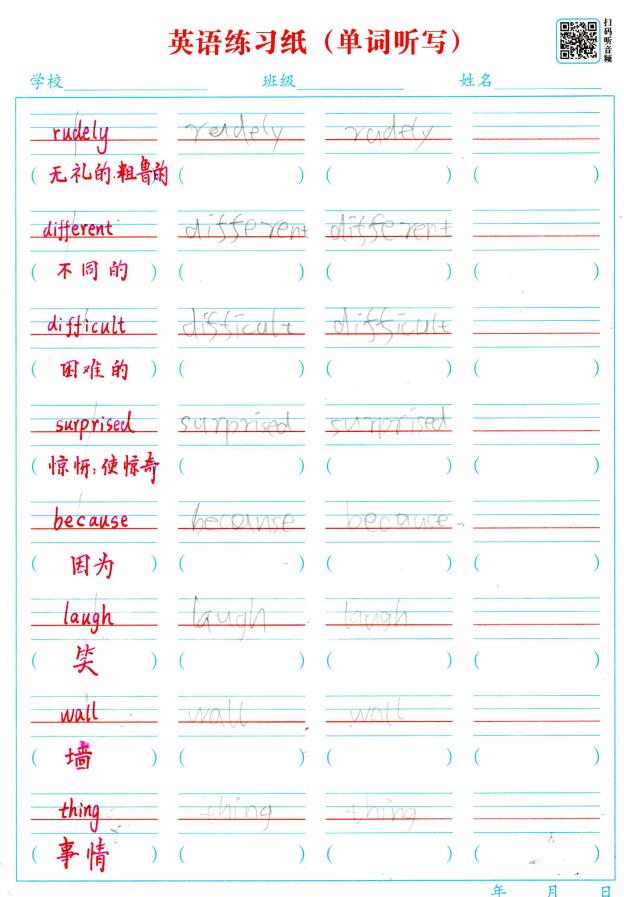 英语练习纸（单词听写）
扫码听音频
学校 班级 姓名
rudely reudely rudely
( 无礼的.粗鲁的 ( ) ( ) ( )
different different different
( 不同的 ) ( ) ( ) ( )
difficult difficult difficult
( 困难的 ) ( ) ( ) ( )
surprised surprised surprised
( 惊怕;使惊奇 ( ) ( ) ( )
because because because
( 因为 ) ( ) ( ) ( )
laugh laugh laugh
( 笑 ) ( ) ( ) ( )
wall wall wall
( 墙 ) ( ) ( ) ( )
thing thing thing
( 事情 ) ( ) ( ) ( )
年 月 日